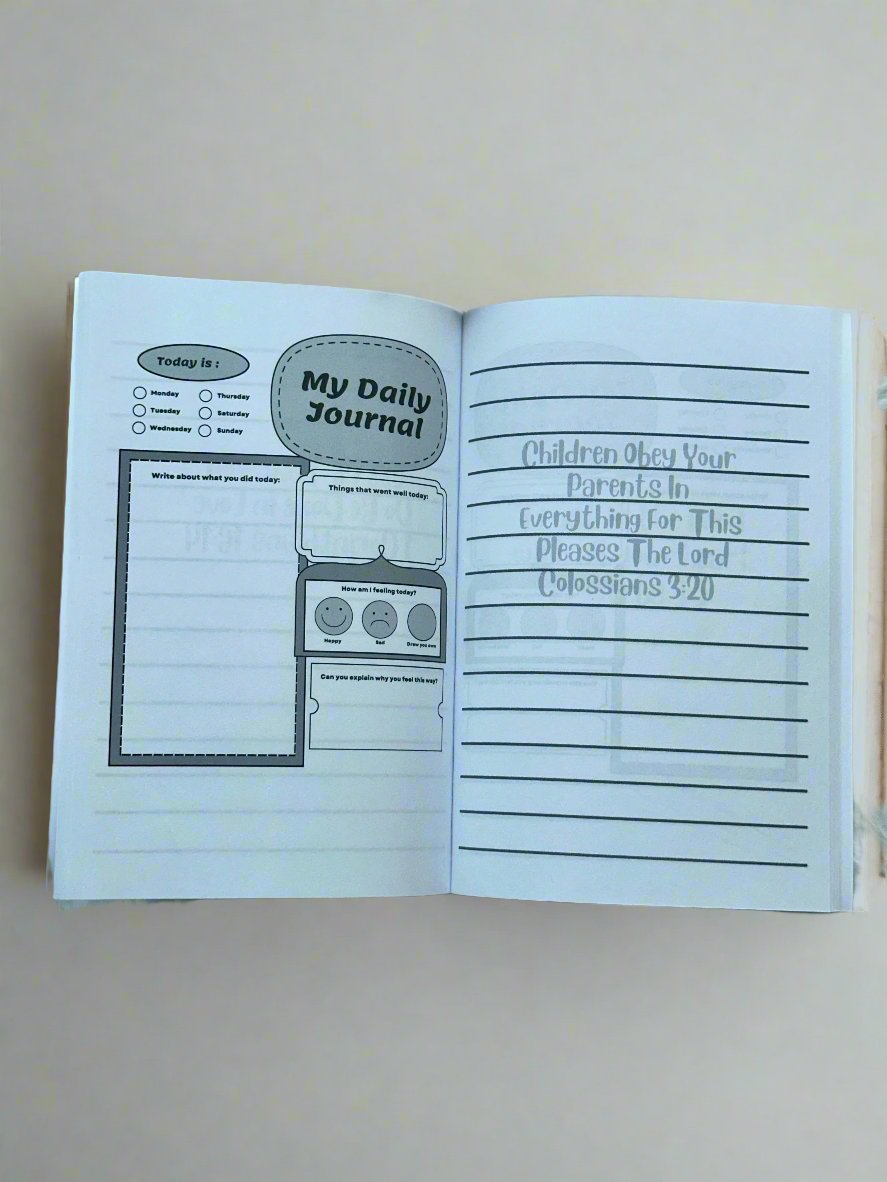 Today is :
Monday
Thursday
Tuesday
Saturday
Wednesday
Sunday
My Daily
Journal
Write about what you did today:
Things that went well today:
How am I feeling today?
Happy
Sad
Draw you own
Can you explain why you feel this way?
Children Obey Your
Parents In
Everything For This
Pleases The Lord
Colossians 3:20